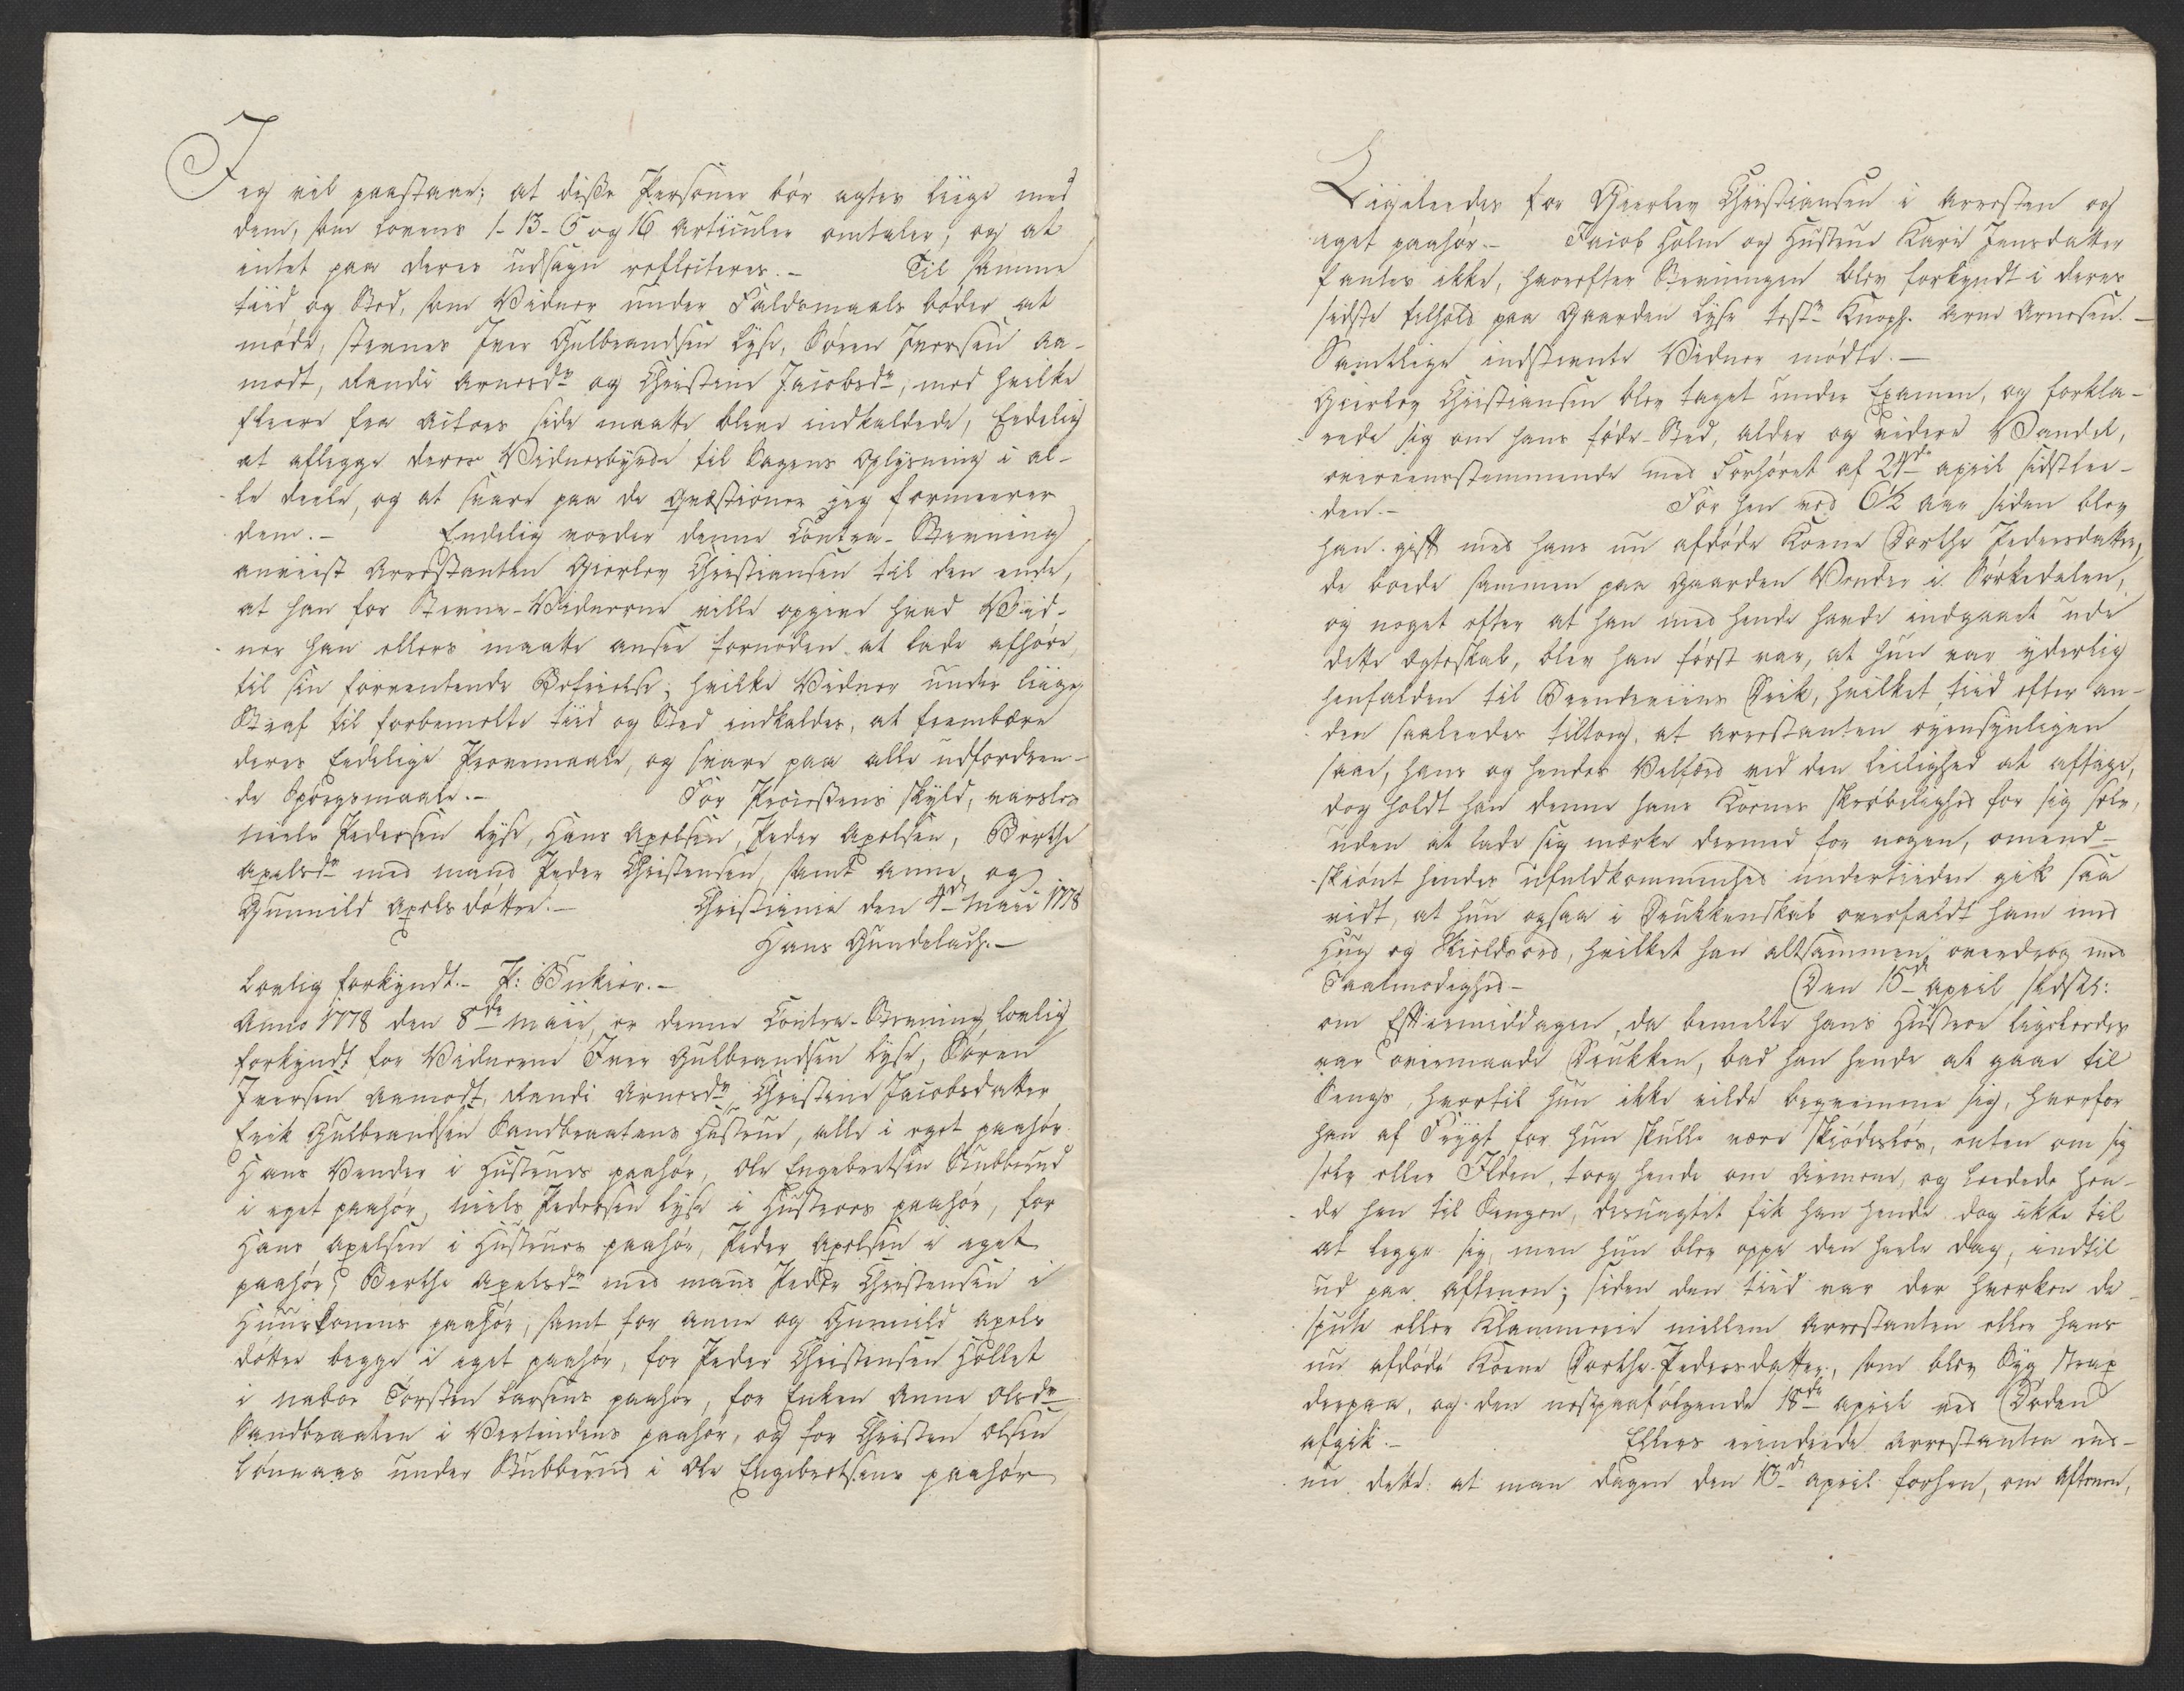 Jeg vil paastaae; at disse Personer bör agtes liige med
dem, som Lovens 1-13-6 og 16 Articuler omtaler, og at
intet paa deres udsagn reflecteres.- Til samme
tiid og Sted, som Vidner under Faldsmaals böder at
möde, stevnes Iver Gulbrandsen Lyse, Sören Iversen Aa-
modt, Randi Arnesdr og Christine Jacobsdr, med hvilke
fleere fra Actors side maatte blive indkaldede, Eedelig
at aflegge deres Vidnesbyrd til Sagens Oplysning i al-
le deele, og at svare paa de Qvæstioner jeg formeerer
dem.- Endelig vorder denne Contra-Stevning
anviist Arrestanten Gierlov Christiansen til den ende,
at han for Stevne-Vidnerne ville opgive hvad Vid-
ner han ellers maatte ansee fornöden at lade afhöre,
til sin forventende Befrielse; hvilke Vidner under liige
Straf til forbemelte tiid og Sted indkaldes, at frembære
deres Eedelige Provemaale, og svare paa alle udfordren-
de Spörgsmaale.- For Processens skyld, varsles
Niels Pedersen Lyse, Hans Axelsen, Peder Axelsen, Berthe
Axelsdr med mand Peder Christensen, samt Anne og
Gunnild Axelsdöttre.- Christiania den 4de Maii 1778
Hans Gundelach.-
Lovlig forkyndt.- P: Bukier.-
Anno 1778 den 8de Maii, er denne Contra-Stevning lovlig
forkyndt for Vidnerne Iver Gulbrandsen Lyse, Sören
Iversen Aamodt, Randi Arnesdr, Christine Jacobsdatter
Erik Gulbrandsen Sandbraatens Hustrue, alle i eget paahör.
Hans Vender i Hustrues paahör, Ole Engebretsen Stubberud
i eget paahör, Niels Pedersen Lyse i Hustroes paahör, for
Hans Axelsen i Hustrues paahör, Peder Axelsen i eget
paahör, Berthe Axelsdr med mand Peder Christensen i
Huuskonens paahör, samt for Anne og Gunnild Axels
döttre begge i eget paahör, for Peder Christensen Hollet
i nabor Torsten Larsens paahör, for Enken Anne Olsdr
Sandbraaten i Vertindens paahör, og for Christen Olsen
Lönaas under Stubberud i Ole Engebretsens paahör
Ligeleedes for Gierlov Christiansen i Arresten og
eget paahör.- Jacob Holm og Hustrue Kari Jensdatter
fantes ikke, hvorefter Stevningen blev forkyndt i deres
sidste tilhold paa Gaarden Lyse test. Knoph. Arne Arnesen.-
Samtlige indstevnte Vidner mödte.-
Gierlov Christiansen blev taget under Examen, og forkla-
rede sig om hans föde-Sted, alder og videre Vandel,
overeensstemmende med Forhöret af 24de april sidstlee-
den.- For hen ved 6½ aar siden blev
han gift med hans nu afdöde Kone Dorthe Pedersdatter,
de boede sammen paa Gaarden Vender i Sörkedalen,
og noget efter at han med hende havde indgaaet ude
dette Ægteskab, blev han först var, at hun var yderlig
henfalden til Brendeviins Drik, hvilket tiid efter an-
den saaleedes tiltoeg, at Arrestanten öyensynligen
saae, hans og hendes Velfærd ved den leilighed at aftage,
dog holdt han denne hans Kones skröbelighed for sig selv,
uden at lade sig mærke dermed for nogen, omend-
skiönt hendes ufuldkommenhed undertiiden gik saa
vidt, at hun ogsaa i Drukkenskab overfaldt ham med
Hug og Skieldsord, hvilket han altsammen overdrog med
Taalmodighed- Den 15de april sidstl:
om Eftermiddagen, da bemelte hans Hustroe ligeleedes
var overmaade Drukken, bad han hende at gaae til
Sengs, hvortil hun ikke vilde beqvemme sig, hvorfor
han af Frygt for hun skulle være skiödeslös, enten om sig
selv eller Ilden, toeg hende om Armene, og leedede hen-
de hen til Sengen, desuagtet fik han hende dog ikke til
at legge sig, men hun blev oppe den heele dag, indtil
ud paa aftenen; siden den tiid var der hverken de-
spute eller Klammerie mellem Arrestanten eller hans
nu afdöde Kone Dorthe Pedersdatter, som blev Syg strax
derpaa, og den nestpaafölgende 18de april ved Döden
afgik.- Ellers erindrede Arrestanten end-
nu dette: at man dagen den 13de april forhen, om Aftenen,